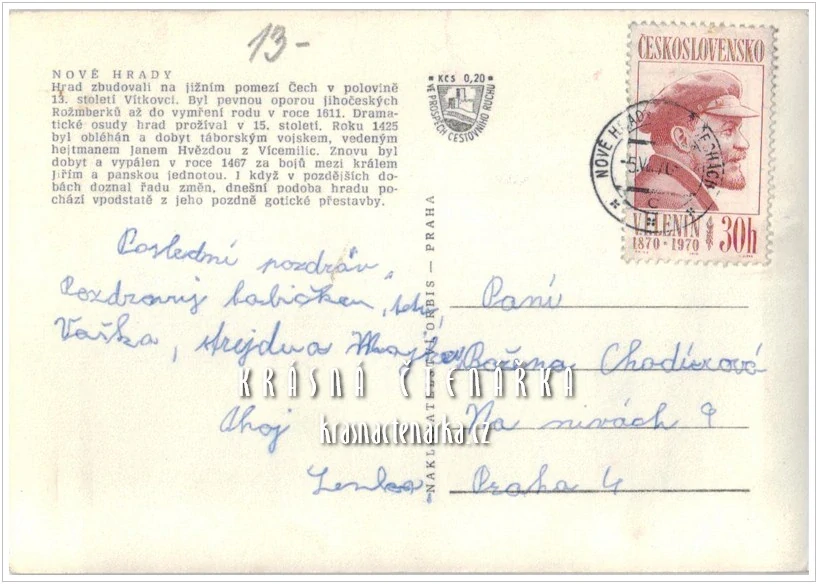 13-
NOVÉ HRADY
Hrad zbudovali na jižním pomezí Čech v polovině
13. století Vítkovci. Byl pevnou oporou jihočeských
Rožmberků až do vymření rodu v roce 1611. Drama-
tické osudy hrad prožíval v 15. století. Roku 1425
byl obléhán a dobyt táborským vojskem, vedeným
hejtmanem Janem Hvězdou z Vícemilic. Znovu byl
dobyt a vypálen v roce 1467 za bojů mezi králem
Jiřím a panskou jednotou. I když v pozdějších do-
bách doznal řadu změn, dnešní podoba hradu po-
chází vpodstatě z jeho pozdně gotické přestavby.
Kčs 0,20
VE PROSPĚCH CESTOVNÍHO RUCHU
ČESKOSLOVENSKO
V.I.LENIN
1870 · 1970
30h
NOVÉ HRADY
C
Poslední pozdrav,
Pozdravuj babičku,
Vaška, strejdu a
Ahoj
Lenka
NAKLADATELSTVÍ ORBIS — PRAHA
Paní
Božena
Na nivách 9
Praha 4
KRÁSNÁ ČTENÁRKA
krasnactenarka.cz